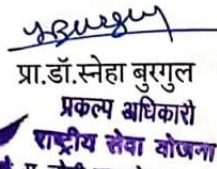 प्रा.डॉ.स्नेहा बुरगुल
प्रकल्प अधिकारी
राष्ट्रीय सेवा योजना